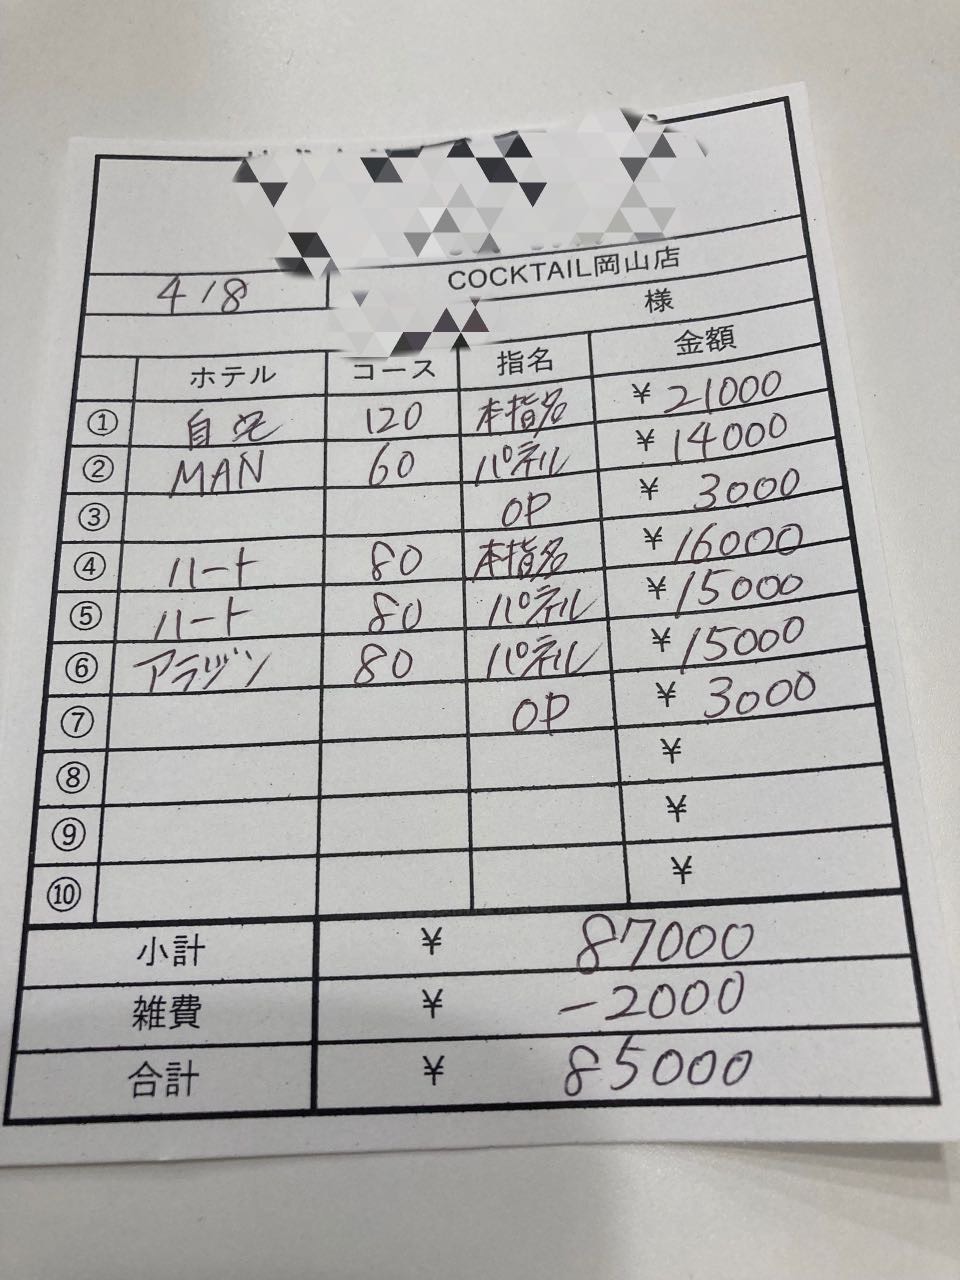 COCKTAIL岡山店
4/8
様
ホテル コース 指名 金額
① 自宅 120 本指名 ¥21000
② MAN 60 パネル ¥14000
③ OP ¥3000
④ ハート 80 本指名 ¥16000
⑤ ハート 80 パネル ¥15000
⑥ アラジン 80 パネル ¥15000
⑦ OP ¥3000
⑧ ¥
⑨ ¥
⑩ ¥
小計 ¥ 87000
雑費 ¥ -2000
合計 ¥ 85000